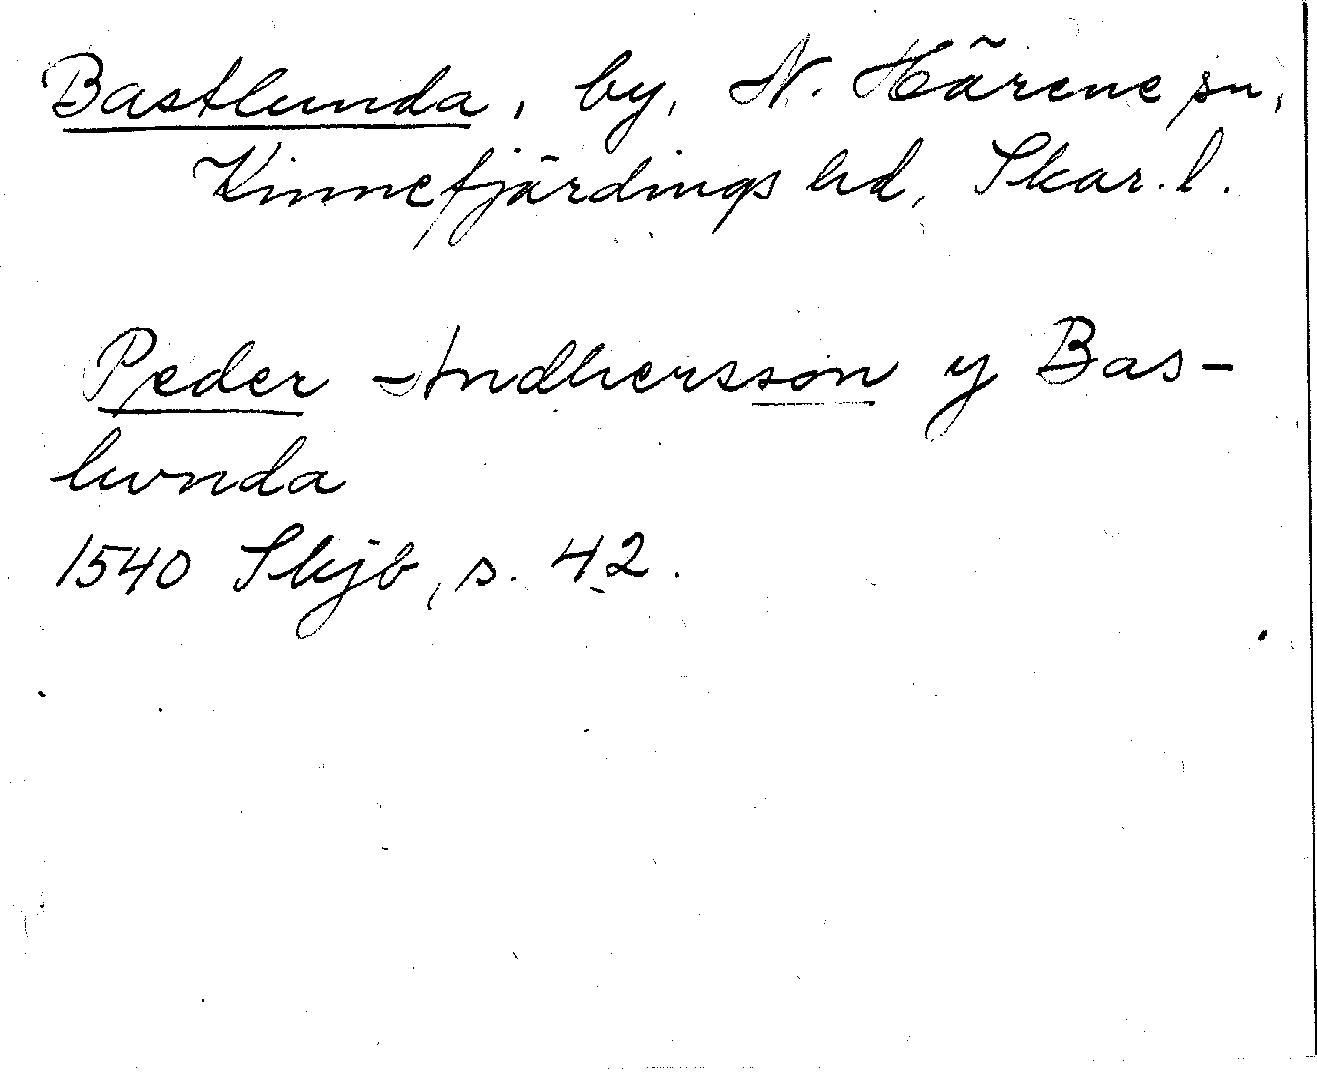 Bastlunda, by, N. Härene sn,
Kinnefjärdings hd, Skar. l.
Peder Andhersson y Bas-
lwnda
1540 Skjb, s. 42.